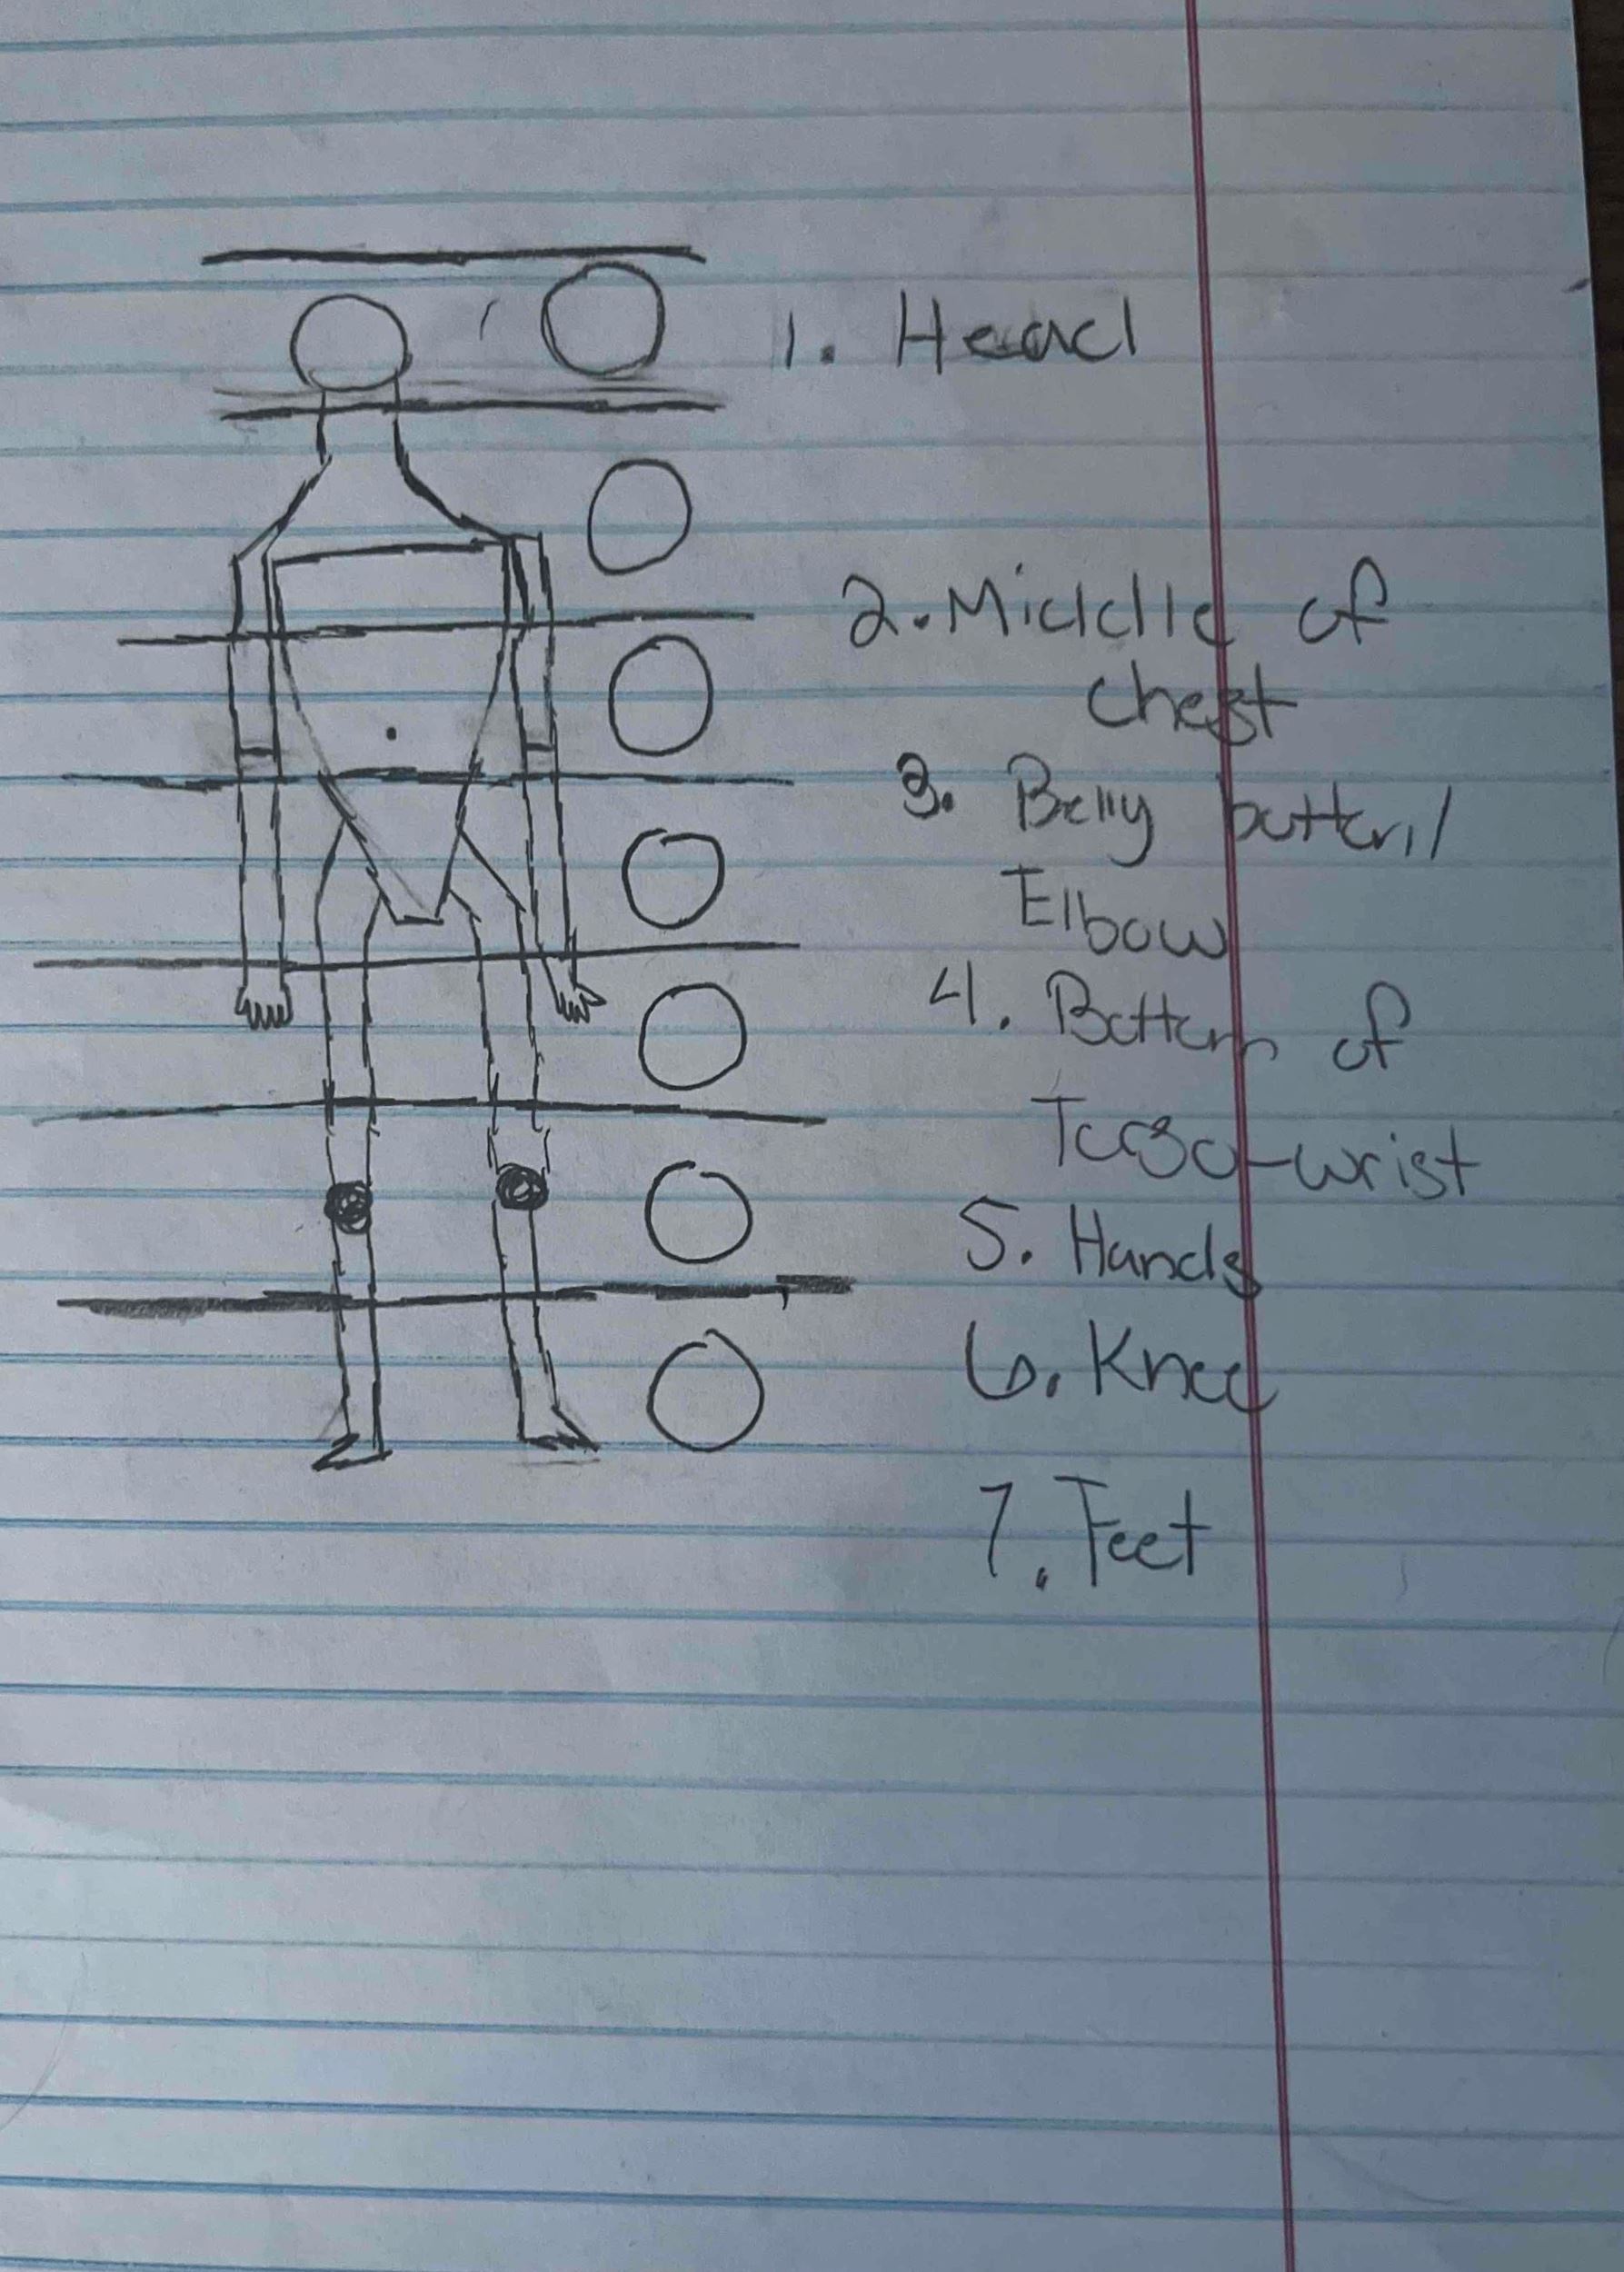 1. Head
2. Middle of
chest
3. Belly button/
Elbow
4. Bottom of
Torso-wrist
5. Hands
6. Knee
7. Feet